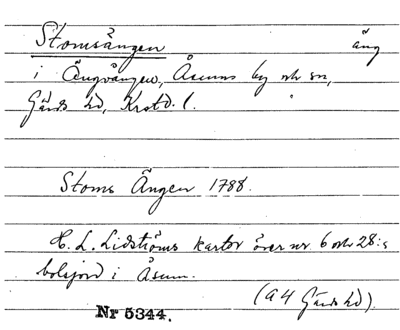 Stomsängen äng
i Ängvången, Åsums by och sn,
Gärds hd, Krstd. l.
Stoms Ängen 1788.
H. L. Lidströms kartor över nr 6 och 28:s
bolsjord i Åsum.
(a 4 Gärds hd).
Nr 5344.